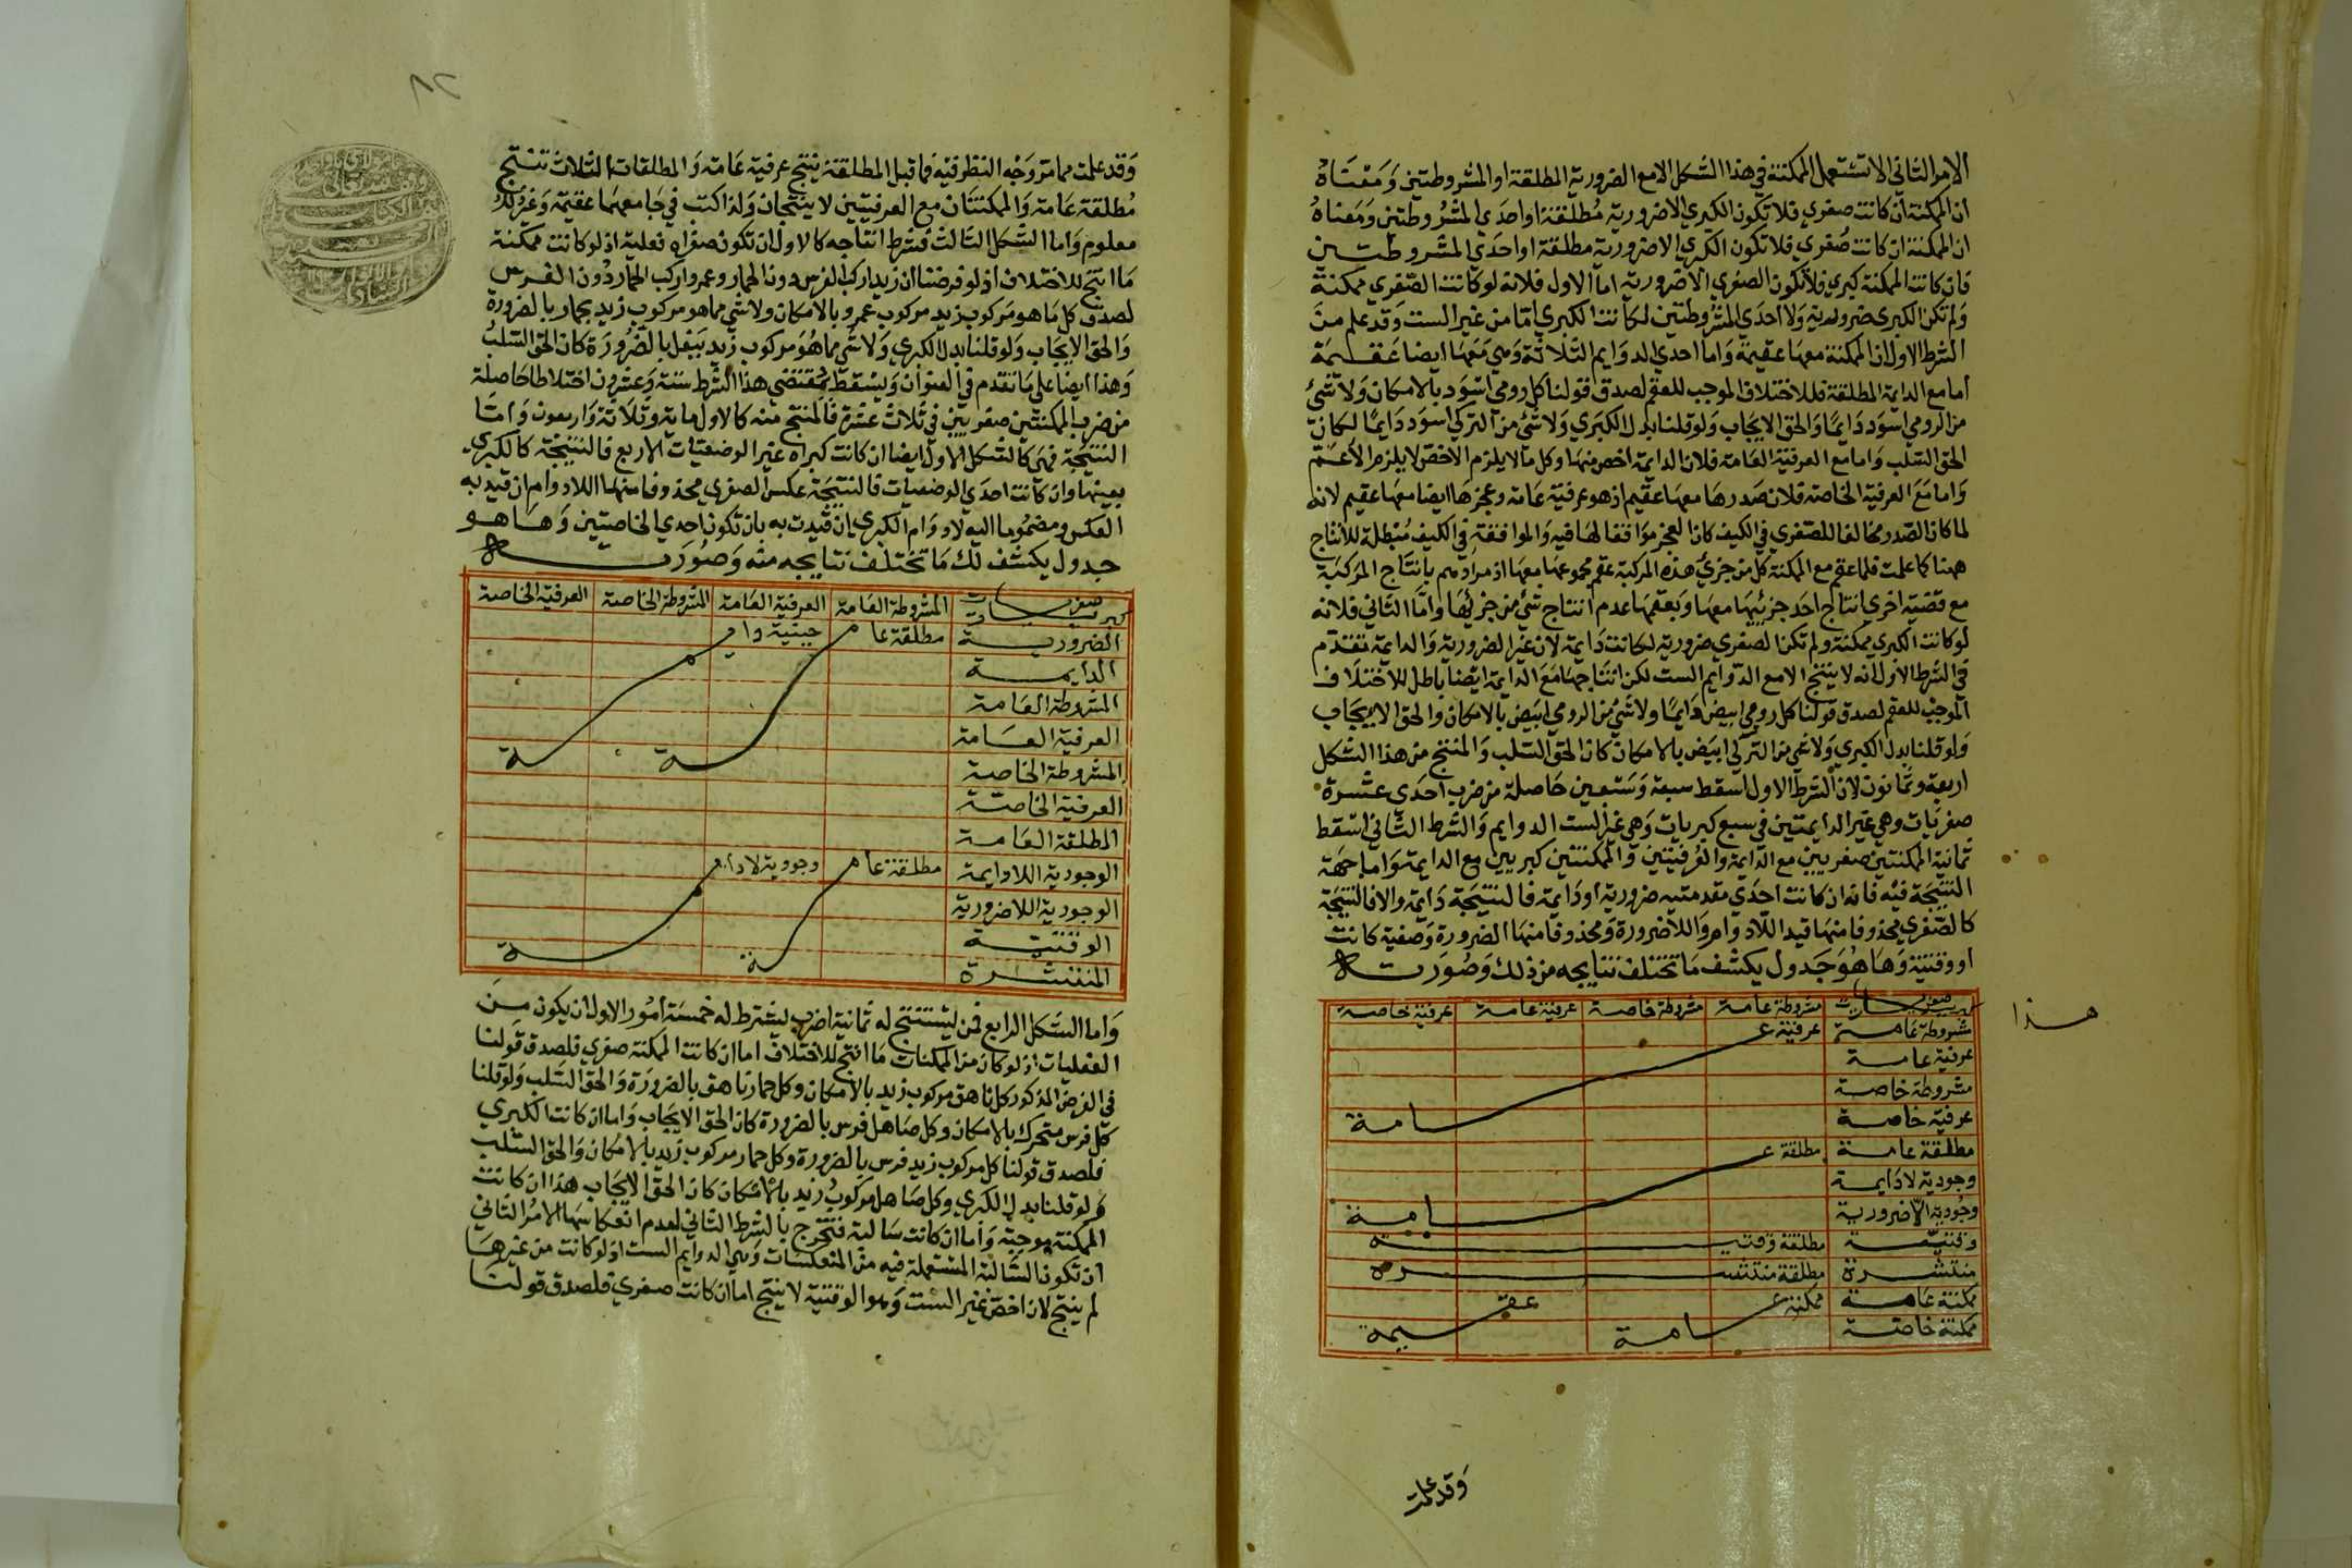 الامر الثاني ان لا تستعمل الممكنة في هذا الشكل الا مع الضرورية المطلقة او المشروطتين ومعناه
ان الممكنة ان كانت صغري فلا تكون الكبري الا ضرورية مطلقة او احدي المشروطتين ومعناه
ان الممكنة ان كانت صغري فلا تكون الكبري الا ضرورية مطلقة او احدي المشروطتين
فان كانت الممكنة كبري فلا تكون الصغري الا ضرورية اما الاول فلانه لو كانت الصغري ممكنة
ولم تكن الكبري ضرورية ولا احدي المشروطتين لكانت الكبري اما من غير الست وقد علم من
الشرط الاول ان الممكنة معها عقيمة واما احدي الدوايم الثلاثة وهي معها ايضا عقيمة
اما مع الدايمة المطلقة فللاختلاف الموجب للعقم لصدق قولنا كل رومي اسود بالامكان ولا شئ
من الرومي اسود دايمًا والحق الايجاب ولو قلنا بدل الكبري ولا شئ من التركي اسود دايمًا لكان
الحق السلب واما مع العرفية العامة فلان الدايمة اخص منها وكل ما لا يلزم الاخص لا يلزم الاعم
واما مع العرفية الخاصة فلان صدرها معها عقيم اذ هو عرفية عامة وعجزها ايضا معها عقيم لانه
لما كان الصدر مخالفا للصغري في الكيف كان العجز موافقا لها فيه والموافقة في الكيف مبطلة للانتاج
هنا كما علمت فلما عقم مع الممكنة كل من جزئي هذه المركبة عقم مجموعها معها اذ مرادهم بانتاج المركبة
مع قضية اخري انتاج احد جزئيها معها وبعقمها عدم انتاج شئ من جزئيها واما الثاني فلانه
لو كانت الكبري ممكنة ولم تكن الصغري ضرورية لكانت دايمة لان غير الضرورية والدايمة تقدم
في الشرط الاول انه لا ينتج الا مع الدوايم الست لكن انتاجها مع الدايمة ايضا باطل للاختلاف
الموجب للعقم لصدق قولنا كل رومي ابيض دايمًا ولا شئ من الرومي ابيض بالامكان والحق الايجاب
ولو قلنا بدل الكبري ولا شئ من التركي ابيض بالامكان كان الحق السلب والمنتج من هذا الشكل
اربعة وثمانون لان الشرط الاول اسقط سبعة وسبعين حاصلة من ضرب احدي عشرة
صغريات وهي غير الدايمتين في سبع كبريات وهي غير الست الدوايم والشرط الثاني اسقط
ثمانية الممكنتين صغريين مع الدايمة والعرفيتين والممكنتين كبريين مع الدايمة واما جهة
النتيجة فيه فانه ان كانت احدي مقدمتيه ضرورية او دايمة فالنتيجة دايمة والا فالنتيجة
كالصغري محذوفا منها قيد اللادوام واللاضرورة ومحذوفا منها الضرورة وصفية كانت
او وقتية وها هو جدول يكشف ما تختلف نتايجه من ذلك وصورته
هذا
مشروطة عامة مشروطة خاصة عرفية عامة عرفية خاصة
مشروطة عامة عرفية عـــامة
عرفية عامة
مشروطة خاصة
عرفية خاصة
مطلقة عامة مطلقة عـــامة
وجودية لا دايمة
وجودية لا ضرورية
وقتية مطلقة وقتيـــة
منتشرة مطلقة منتشـــرة
ممكنة عامة ممكنة عـــامة عقـــيمة
ممكنة خاصة
وقد علمت
وقد علمت مما مر وجه النظر فيه فما قبل المطلقة ينتج عرفية عامة والمطلقات الثلاث تنتج
مطلقة عامة والممكنتان مع العرفيتين لا ينتجان ولذا كتب في جامعهما عقيمة وغير ذلك
معلوم واما الشكل الثالث فشرط انتاجه كالاول ان تكون صغراه فعلية اذ لو كانت ممكنة
ما انتج للاختلاف اذ لو فرضنا ان زيدا ركب الفرس دون الحمار وعمرو اركب الحمار دون الفرس
لصدق كل ما هو مركوب زيد مركوب عمرو بالامكان ولا شئ مما هو مركوب زيد بحمار بالضرورة
والحق الايجاب ولو قلنا بدل الكبري ولا شئ مما هو مركوب زيد ببغل بالضرورة كان الحق السلب
وهذا ايضا علي ما تقدم في العنوان ويسقط بمقتضي هذا الشرط ستة وعشرون اختلاطا حاصلة
من ضرب الممكنتين صغريين في ثلاث عشرة فالمنتج منه كالاول ماية وثلاثة واربعون واما
النتيجة فهي كالشكل الاول ايضا ان كانت كبراه غير الوضعيات الاربع فالنتيجة كالكبري
بعينها وان كانت احدي الوضعيات فالنتيجة عكس الصغري محذوفا منها اللادوام ان قيد به
العكس ومضموما اليه لادوام الكبري ان قيدت به بان تكون احدي الخاصتين وها هو
جدول يكشف لك ما تختلف نتايجه منه وصورته
صغريات كبريات المشروطة العامة العرفية العامة المشروطة الخاصة العرفية الخاصة
الضرورية مطلقة عامـــة
الدايمة
المشروطة العامة
العرفية العامة
المشروطة الخاصة
العرفية الخاصة
المطلقة العامة
الوجودية اللادايمة مطلقة عامـــة وجودية لادايمـــة
الوجودية اللاضرورية
الوقتية
المنتشرة
واما الشكل الرابع فمن يستنتج له ثمانية اضرب يشترط له خمسة امور الاول ان يكون من
الفعليات اذ لو كان من الممكنات ما انتج للاختلاف اما ان كانت الممكنة صغري فلصدق قولنا
في الفرض المذكور كل ناهق مركوب زيد بالامكان وكل حمار ناهق بالضرورة والحق السلب ولو قلنا
كل فرس متحرك بالامكان وكل صاهل فرس بالضرورة كان الحق الايجاب واما ان كانت الكبري
فلصدق قولنا كل مركوب زيد فرس بالضرورة وكل حمار مركوب زيد بالامكان والحق السلب
ولو قلنا بدل الكبري وكل صاهل مركوب زيد بالامكان كان الحق الايجاب هذا ان كانت
الممكنة موجبة واما ان كانت سالبة فتخرج بالشرط الثاني لعدم انعكاسها الامر الثاني
ان تكون السالبة المستعملة فيه من المنعكسات وهي الدوايم الست اذ لو كانت من غيرها
لم ينتج لان اخص غير الست وهو الوقتية لا ينتج اما ان كانت صغري فلصدق قولنا